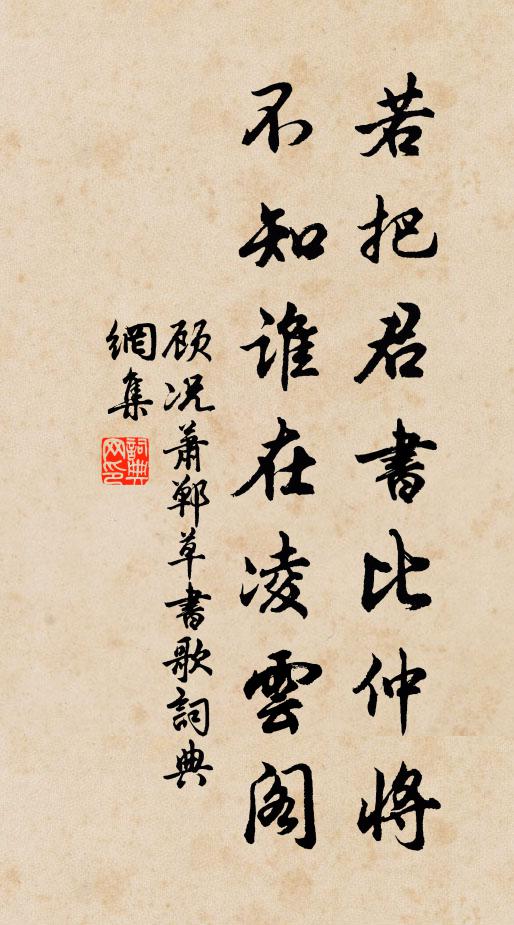 若把君書比仲將
不知誰在凌雲閣
顾况蕭鄲草書歌詞典
網集
詞典
网印